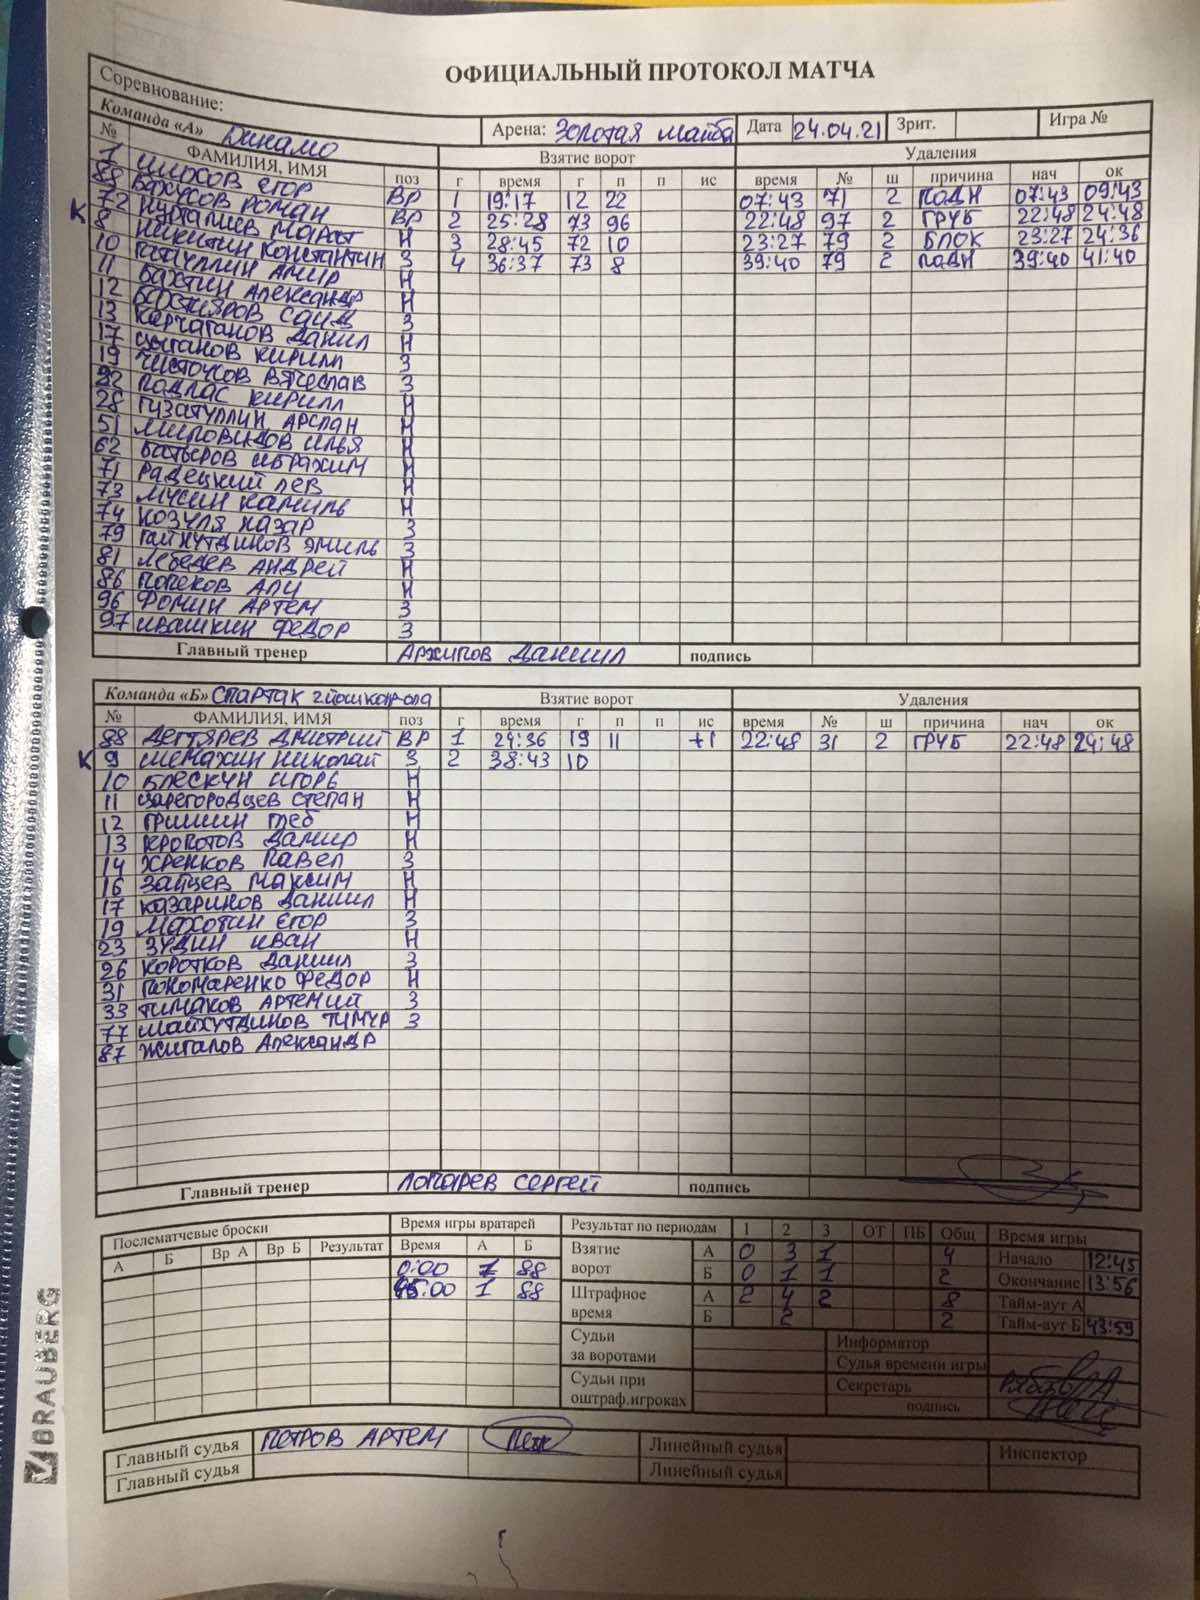 ОФИЦИАЛЬНЫЙ ПРОТОКОЛ МАТЧА
Соревнование:
Команда «А» Динамо Арена: Золотая шайба Дата 24.04.21 Зрит. Игра №
Взятие ворот Удаления
№ ФАМИЛИЯ, ИМЯ поз г время г п п ис время № ш причина нач ок
1 Шлохов Егор ВР 1 19:17 12 22 07:43 71 2 ПОДН 07:43 09:43
88 Вахусов Роман ВР 2 25:28 73 96 22:48 97 2 ГРУБ 22:48 24:48
К 72 Нурталиев Марат Н 3 28:45 72 10 23:27 79 2 БЛОК 23:27 24:36
8 Никитин Константин З 4 36:37 73 8 39:40 79 2 ПОДН 39:40 41:40
10 Гатауллин Амир Н
11 Бахтин Александр Н
12 Бахтияров Саид З
13 Карчаганов Данил Н
17 Цыганов Кирилл З
19 Чистоусов Вячеслав З
22 Подлас Кирилл Н
28 Гизатуллин Арслан Н
51 Миловидов Илья Н
62 Батыров Ибрахим Н
71 Радецкий Лев Н
73 Мусин Камиль Н
74 Козуля Назар З
79 Гайнутдинов Эмиль З
81 Лебедев Андрей Н
86 Попеков Али Н
96 Фомин Артем З
97 Ивашкин Федор З
Главный тренер Архипов Даниил подпись
Команда «Б» Спартак г Йошкар-ола Взятие ворот Удаления
№ ФАМИЛИЯ, ИМЯ поз г время г п п ис время № ш причина нач ок
88 Дегтярев Дмитрий ВР 1 24:36 19 11 +1 22:48 31 2 ГРУБ 22:48 24:48
К 9 Мемахин Николай З 2 38:43 10
10 Блескун Игорь Н
11 Царегородцев Степан Н
12 Гришин Глеб Н
13 Кропотов Дамир Н
14 Хренков Павел З
16 Зайцев Максим Н
17 Казаринов Даниил Н
19 Мохотин Егор З
23 Зудин Иван Н
26 Коротков Даниил З
31 Пономаренко Федор Н
33 Тимаков Артемий З
77 Шайхутдинов Тимур З
87 Жигалов Александр
Главный тренер Лопарев Сергей подпись
Послематчевые броски Время игры вратарей Результат по периодам 1 2 3 ОТ ПБ Общ Время игры
А Б Вр А Вр Б Результат Время А Б Взятие ворот А 0 3 1 4 Начало 12:45
0:00 1 88 Б 0 1 1 2 Окончание 13:56
45:00 1 88 Штрафное время А 2 4 2 8 Тайм-аут А
Б 2 2 Тайм-аут Б 43:59
Судьи за воротами Информатор
Судья времени игры
Судьи при оштраф.игроках Секретарь
подпись
Главный судья Петров Артем Линейный судья Инспектор
Главный судья Линейный судья
BRAUBERG